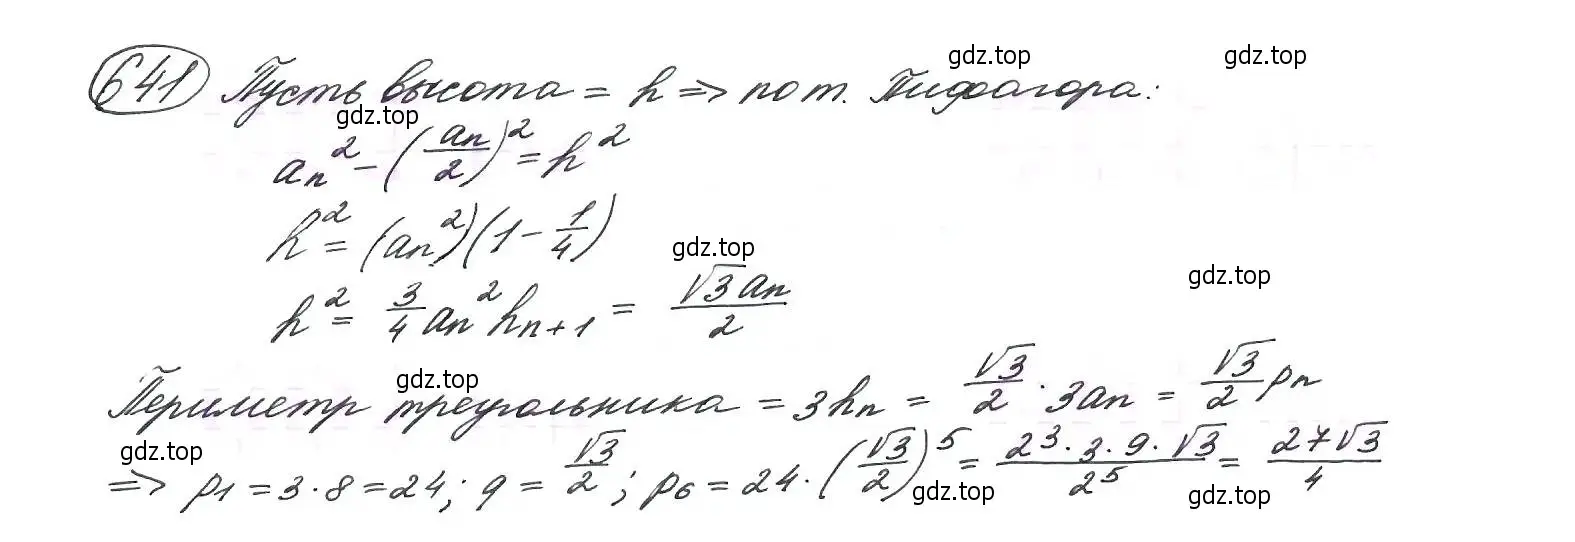 641 Пусть высота = h => по т. Пифагора:
gdz.top gdz.top
gdz.top
aₙ² - (aₙ/2)² = h²
h² = (aₙ²)(1 - 1/4)
gdz.top
gdz.top
h² = 3/4 aₙ² hₙ₊₁ = √3aₙ/2
gdz.top
Периметр треугольника = 3hₙ = √3/2 · 3aₙ = √3/2 pₙ
gdz.top
=> p₁ = 3·8 = 24; q = √3/2; p₆ = 24·(√3/2)⁵ = 2³·3·9·√3/2⁵ = 27√3/4
gdz.top gdz.top